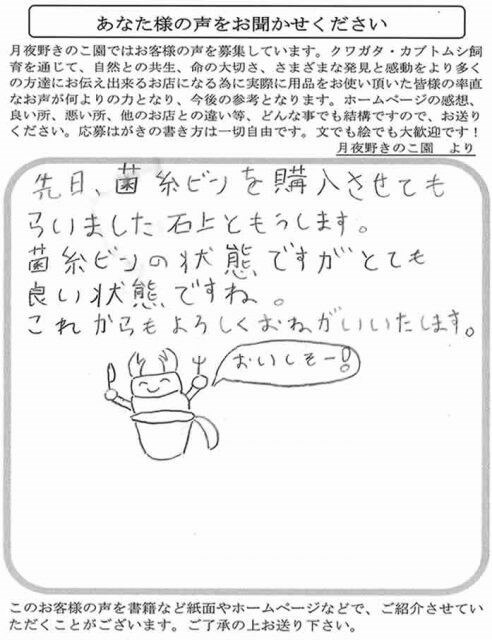 あなた様の声をお聞かせください
月夜野きのこ園ではお客様の声を募集しています。クワガタ・カブトムシ飼
育を通じて、自然との共生、命の大切さ、さまざまな発見と感動をより多く
の方達にお伝え出来るお店になる為に実際に用品をお使い頂いた皆様の率直
なお声が何よりの力となり、今後の参考となります。ホームページの感想、
良い所、悪い所、他のお店との違い等、どんな事でも結構ですので、お送り
ください。応募はがきの書き方は一切自由です。文でも絵でも大歓迎です！
月夜野きのこ園 より
先日、菌糸ビンを購入させても
らいました石上ともうします。
菌糸ビンの状態ですがとても
良い状態ですね。
これからもよろしくおねがいいたします。
おいしそー！
このお客様の声を書籍など紙面やホームページなどで、ご紹介させてい
ただくことがございます。ご了承の上お送り下さい。